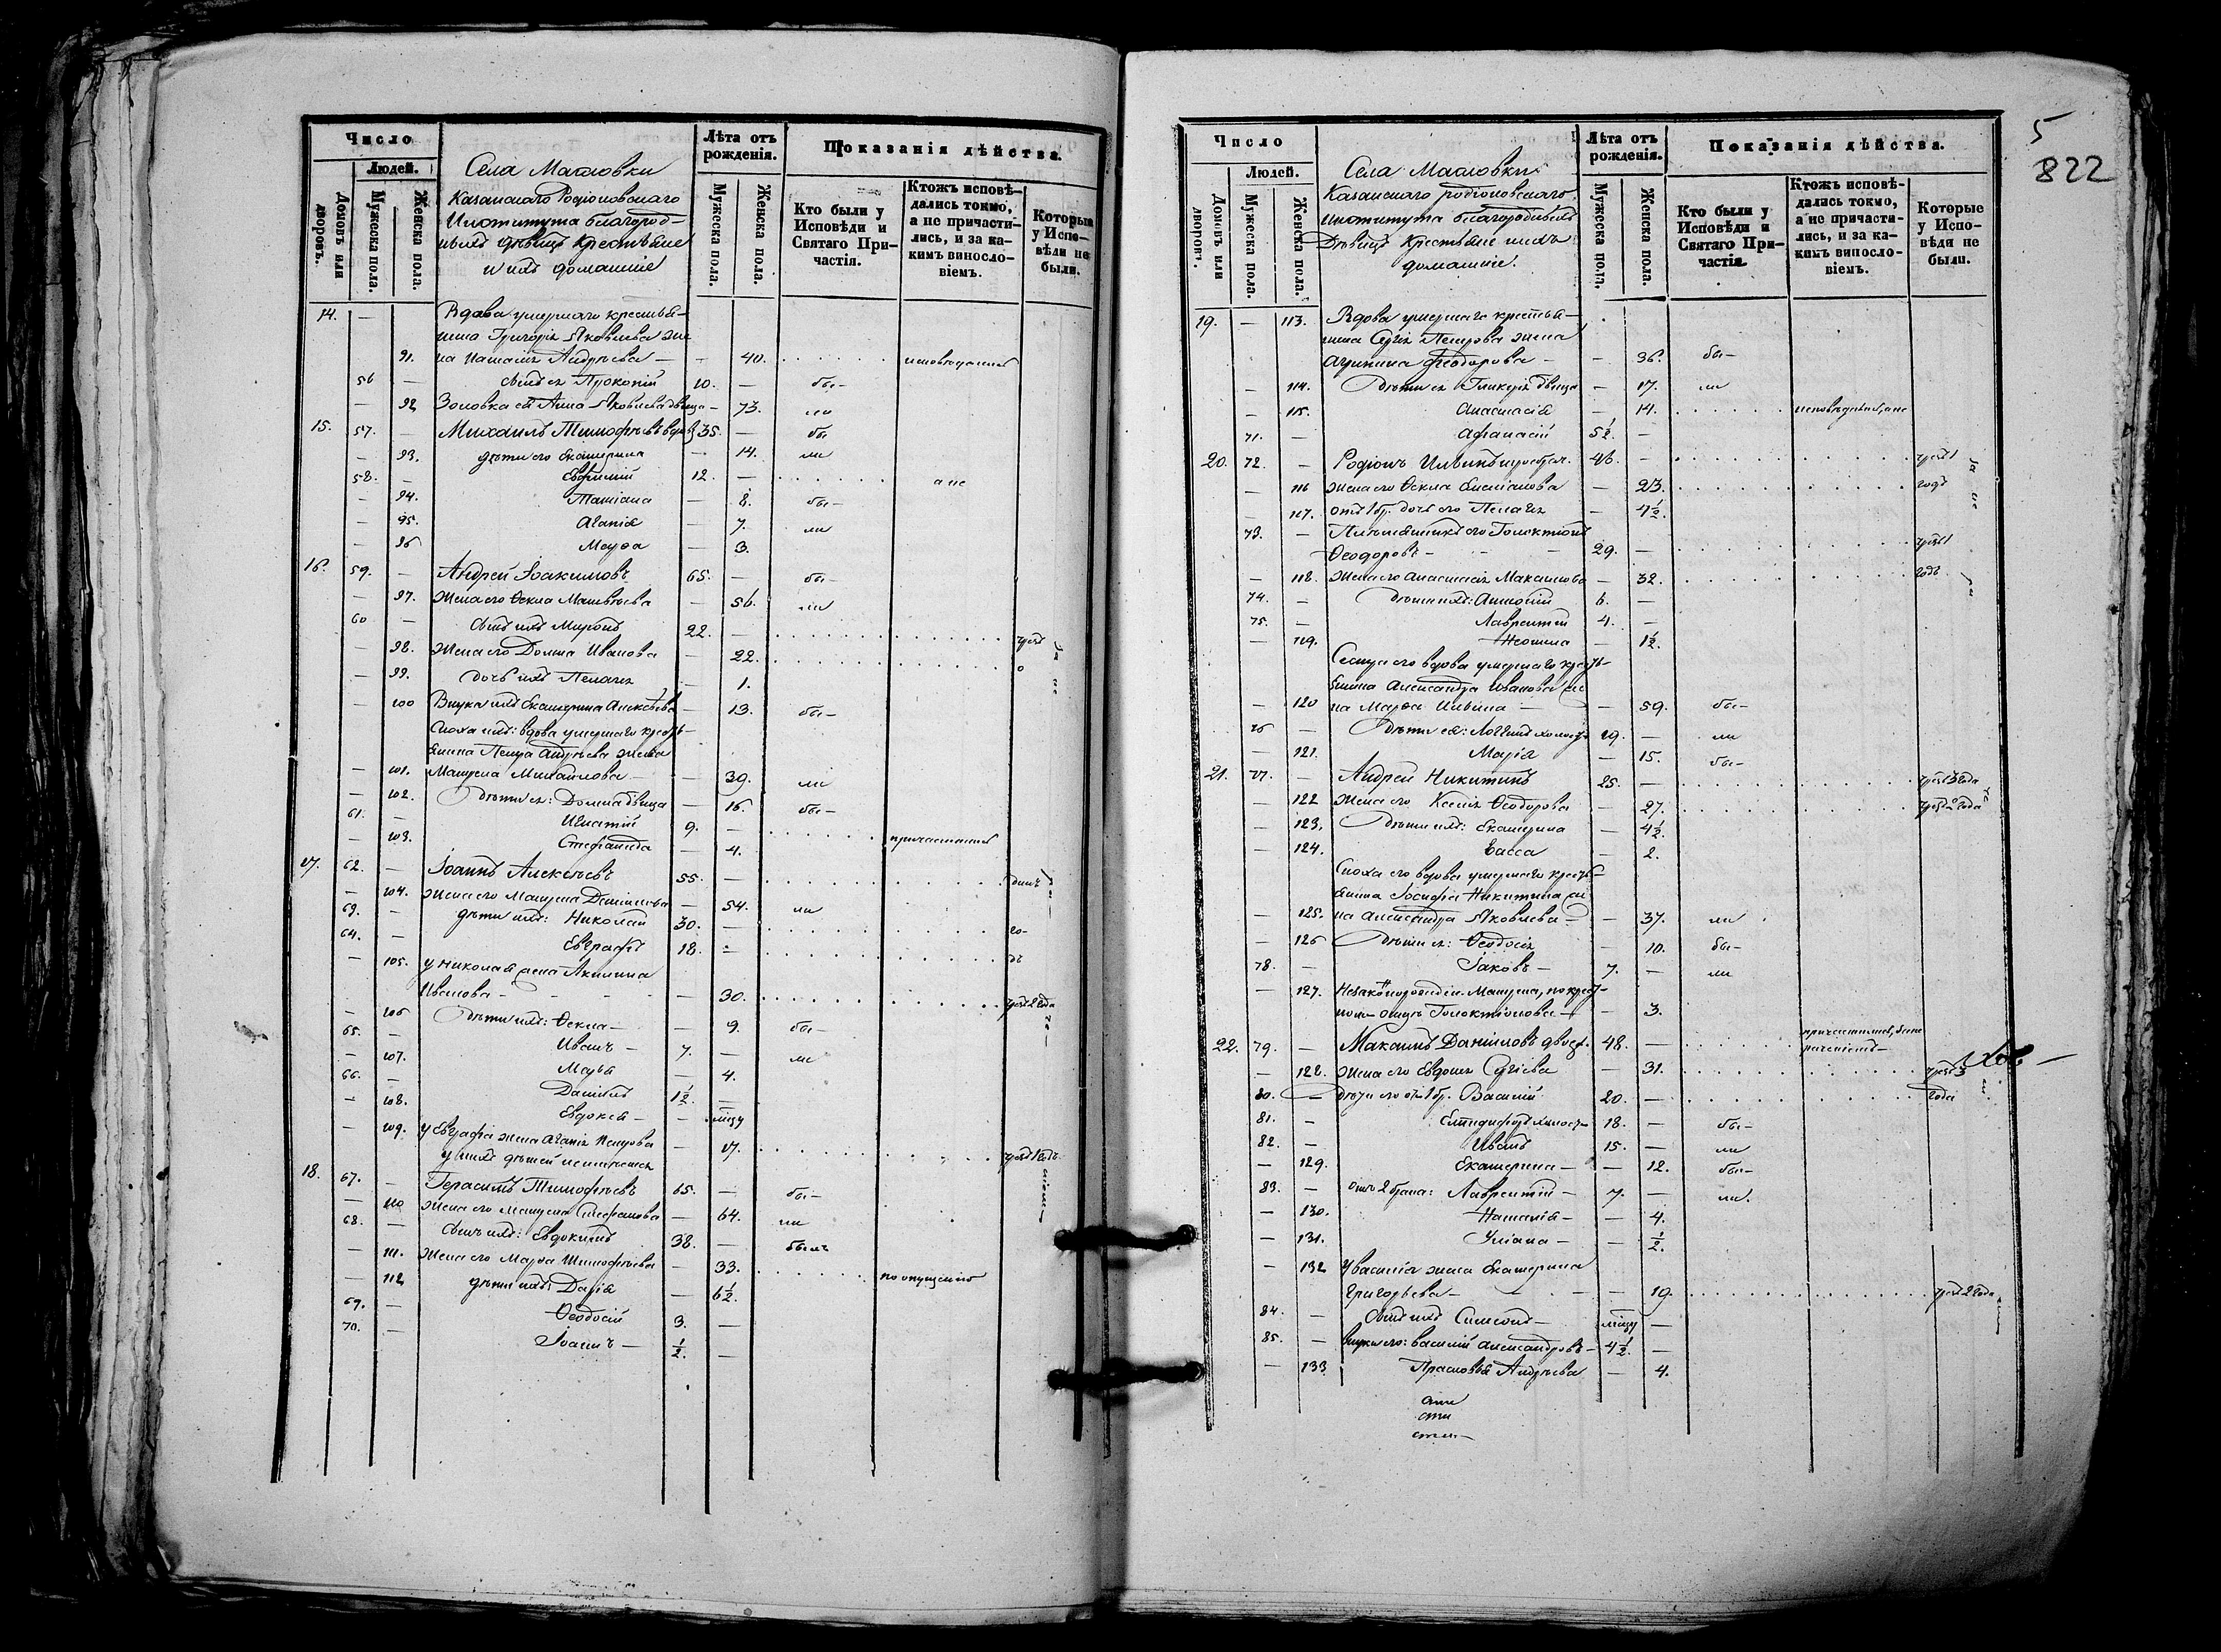 Число
Людей.
Домовъ или дворовъ.
Мужеска пола.
Женска пола.
Села Масловки
Казанскаго Родіоновскаго
Института благород-
ныхъ дѣвицъ крестьяне
и ихъ домашніе
Лѣта отъ рожденія.
Мужеска пола.
Женска пола.
Показанія дѣйства.
Кто были у Исповѣди и Святаго Причастія.
Ктожъ исповѣдались токмо, а не причастились, и за какимъ винословіемъ.
Которые у Исповѣди не были.
14. — Вдова умершаго крестья-
нина Григорія Яковлева же
91. на Наталія Андреева — – 40.
56 — сынъ ея Прокопій 10. — бы–
— 92 Золовка ея Анна Яковлева дѣвица – 73. ли
15. 57. — Михаилъ Тимофѣевъ вдовъ 35. — бы
— 93. дѣти его Екатерина — 14. ли
58. — Евфимій 12. — а не
— 94. Татіана — 8. бы–
— 95. Агапія — 7. ли
— 96 Марфа — 3.
16. 59. — Андрей Іоакимовъ 65. — бы–
— 97. Жена его Ѳекла Матвѣева — 56. ли
60 — сынъ ихъ Миронъ 22. —
— 98. Жена его Домна Иванова — 22.
— 99. дочь ихъ Пелагія — 1.
— 100 Внука ихъ Екатерина Алексѣева — 13. бы–
Сноха ихъ: вдова умершаго кресть-
янина Петра Андреева жена
— 101. Матрена Михайлова — — 39. ли
— 102. Дѣти ея: Домна дѣвица — 16. бы–
61. — Игнатій 9. — причастился
— 103. Стефанида — 4.
17. 62. — Іоаннъ Алексѣевъ 55. —
— 104. Жена его Матрена Данилова — 54. ли
63. — дѣти ихъ: Николай 30. — го–
64. — Евграфъ 18. – дъ
— 105. у Николая жена Акилина
Иванова — — 30. чрезъ 2 года
— 106 Дѣти ихъ: Ѳекла — — 9. бы–
65. — Иванъ — 7. — ли
— 107. Марья — 4.
66. — Даніилъ 1½ —
— 108. Евдокея — – мцу
— 109. у Евграфа жена Агапія Петрова — 17. чрезъ 1 годъ
у нихъ дѣтей не имѣется
18. 67. — Герасимъ Тимофѣевъ 65. — бы–
— 110 Жена его Матрена Стефанова — 64. ли
68. — сынъ ихъ: Евдокимъ 38. — былъ
— 111. Жена его Марфа Тимофѣева — 33. по опущенію
— 112 дѣти ихъ: Дарія — 6½.
69. — Ѳеодосій 3. —
70. — Іоаннъ — ½. —
5
822
Число
Людей.
Домовъ или дворовъ.
Мужеска пола.
Женска пола.
Села Масловки
Казанскаго родіоновскаго
института благородныхъ
Дѣвицъ крестьяне и ихъ
домашніе.
Лѣта отъ рожденія.
Мужеска пола.
Женска пола.
Показанія дѣйства.
Кто были у Исповѣди и Святаго Причастія.
Ктожъ исповѣдались токмо, а не причастились, и за какимъ винословіемъ.
Которые у Исповѣди не были.
19. — 113. Вдова умершаго крестья–
нина Сергія Петрова жена
Агрипина Ѳеодорова — — 36. бы–
— 114. Дѣти ея Гликерія дѣвица — 17. ли
— 115. Анастасія — 14.
71. — Афанасій 5½. —
20. 72. — Родіонъ Ильинъ 46. — чрезъ 1
— 116 Жена его Ѳекла — 23. годъ
— 117. отъ 1 бр. дочь его Пелагія — 4½.
73. — Племянникъ его Голактіонъ
Ѳеодоровъ — 29. — чрезъ 1
— 118. Жена его Анастасія Максимова — 32. годъ
74. — Дѣти ихъ: Антоній 6. —
75. — Лаврентій 4. —
— 119. — 1½.
Сестра его вдова умершаго кресть–
янина Александра Иванова же
— 120 на Марфа Ильина — — 59. бы–
76 — Дѣти ея: Логгинъ холостъ 19. — ли
— 121. Марія — 15. бы–
21. 77. — Андрей Никитинъ 25. — чрезъ 3 года
— 122 Жена его Ксенія Ѳеодорова — 27. чрезъ 2 года
— 123. Дѣти ихъ: Екатерина — 4½.
— 124. Васса — 2.
Сноха его вдова умершаго кресть–
янина Іосифа Никитина же
— 125. на Александра Яковлева — — 37. ли
— 126 Дѣти ея: Ѳеодосія — 10. бы–
78. — Іаковъ — 7. — ли
— 127. Незаконорожден. Матрена, по крест–
ному отцу Голактіонова — — 3.
22. 79. — Максимъ Даниловъ 48. —
— 128. Жена его Евдокія Сергіева — 31. чрезъ 3
80. — дѣти его отъ 1 бр. Василій 20. — года
81. – Спиридонъ холостъ 18. — бы–
82. – Иванъ 15. — ли
— 129. Екатерина — — 12. бы–
83. – Отъ 2 брака: Лаврентій — 7. — ли.
— 130. Наталія — — 4.
— 131. Уліана — — ½.
— 132 У Василія жена Екатерина
Григорьева — — 19. чрезъ 2 года
84. — Сынъ ихъ Симеонъ — мцу —
85. — внуки его: Василій Александровъ — 4½. —
— 133 Прасковья Андреева — 4.